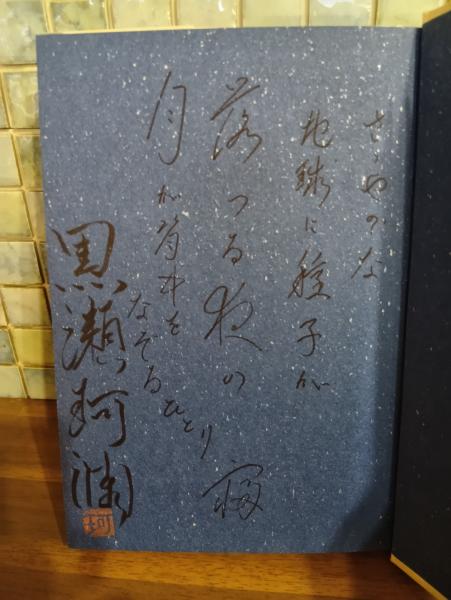 さゝやかな
地球に種子が
落つる夜の
月が背中を
なぞるひとり
寝
黒瀬珂瀾
珂